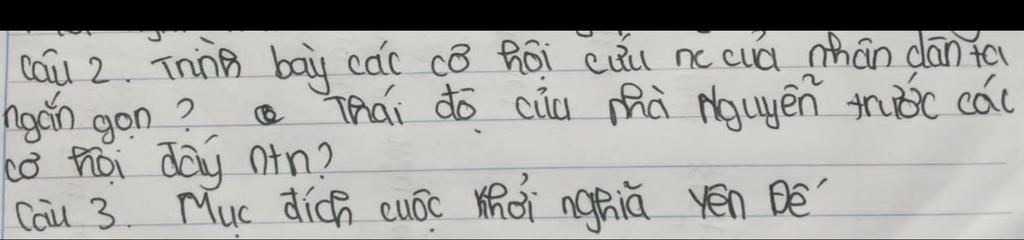 Câu 2. Trình bày các cơ hội cứu nc của nhân dân ta
ngắn gọn? Thái độ của nhà Nguyễn trước các
cơ hội đấy ntn?
Câu 3. Mục đích cuộc khởi nghĩa Yên Đế